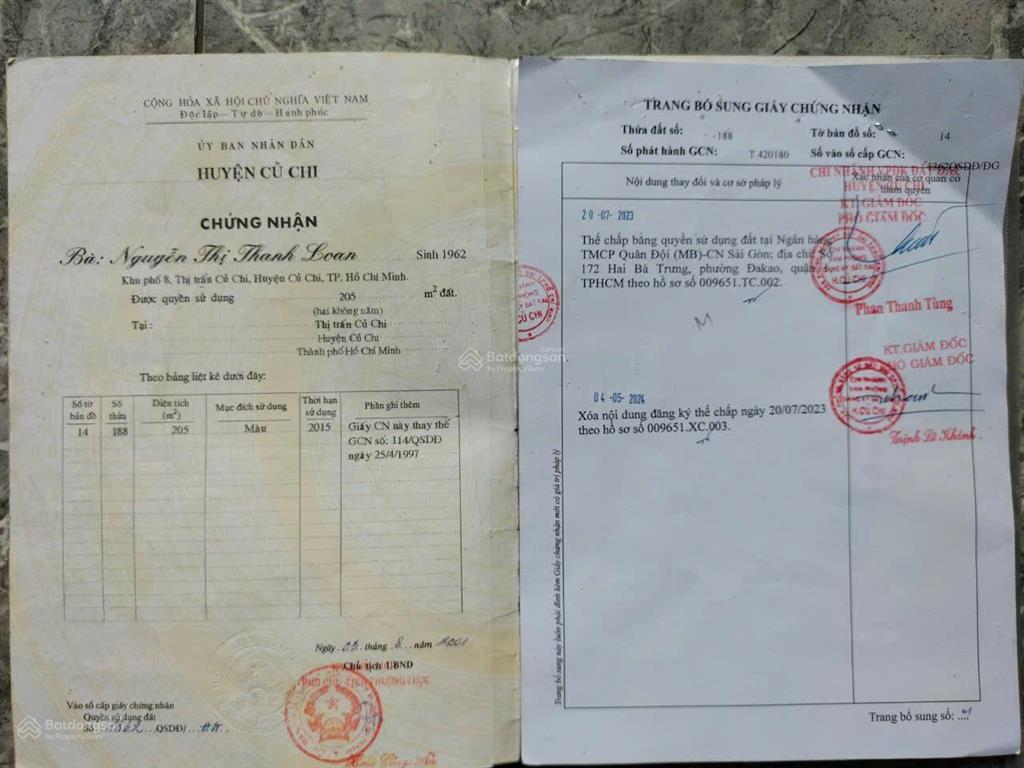 CỘNG HÒA XÃ HỘI CHỦ NGHĨA VIỆT NAM
Độc lập – Tự do – Hạnh phúc
ỦY BAN NHÂN DÂN
HUYỆN CỦ CHI
CHỨNG NHẬN
Bà: Nguyễn Thị Thanh Loan Sinh 1962
Khu phố 8, Thị trấn Củ Chi, Huyện Củ Chi, TP. Hồ Chí Minh.
Được quyền sử dụng 205 m² đất.
(hai không năm)
Tại : Thị trấn Củ Chi
Huyện Củ Chi
Thành phố Hồ Chí Minh
Theo bảng liệt kê dưới đây:
Số tờ bản đồ Số thửa Diện tích (m²) Mục đích sử dụng Thời hạn sử dụng Phần ghi thêm
14 188 205 Màu 2015 Giấy CN này thay thế
GCN số: 114/QSDĐ
ngày 25/4/1997
Ngày 02 tháng 8 năm 2001
Chủ tịch UBND
PHÓ CHỦ TỊCH THƯỜNG TRỰC
Vào sổ cấp giấy chứng nhận
Quyền sử dụng đất
Số 1362 QSDĐ/
Batdongsan
by PropertyGuru
TRANG BỔ SUNG GIẤY CHỨNG NHẬN
Thửa đất số: 188 Tờ bản đồ số: 14
Số phát hành GCN: T 420180 Số vào sổ cấp GCN: 1362QSDĐ/ĐG
Nội dung thay đổi và cơ sở pháp lý
Xác nhận của cơ quan có thẩm quyền
CHI NHÁNH VPĐK ĐẤT ĐAI
HUYỆN CỦ CHI
KT. GIÁM ĐỐC
PHÓ GIÁM ĐỐC
20 -07- 2023
Thế chấp bằng quyền sử dụng đất tại Ngân hàng
TMCP Quân Đội (MB)-CN Sài Gòn; địa chỉ: Số
172 Hai Bà Trưng, phường Đakao, quận
TPHCM theo hồ sơ số 009651.TC.002.
H.CỦ CHI
Phan Thanh Tùng
Batdongsan
by PropertyGuru
KT.GIÁM ĐỐC
PHÓ GIÁM ĐỐC
04 -05- 2024
Xóa nội dung đăng ký thế chấp ngày 20/07/2023
theo hồ sơ số 009651.XC.003.
H.CỦ CHI
Trịnh Lê Khánh
Trang bổ sung này luôn phải đính kèm Giấy chứng nhận mới có giá trị pháp lý
Trang bổ sung số: